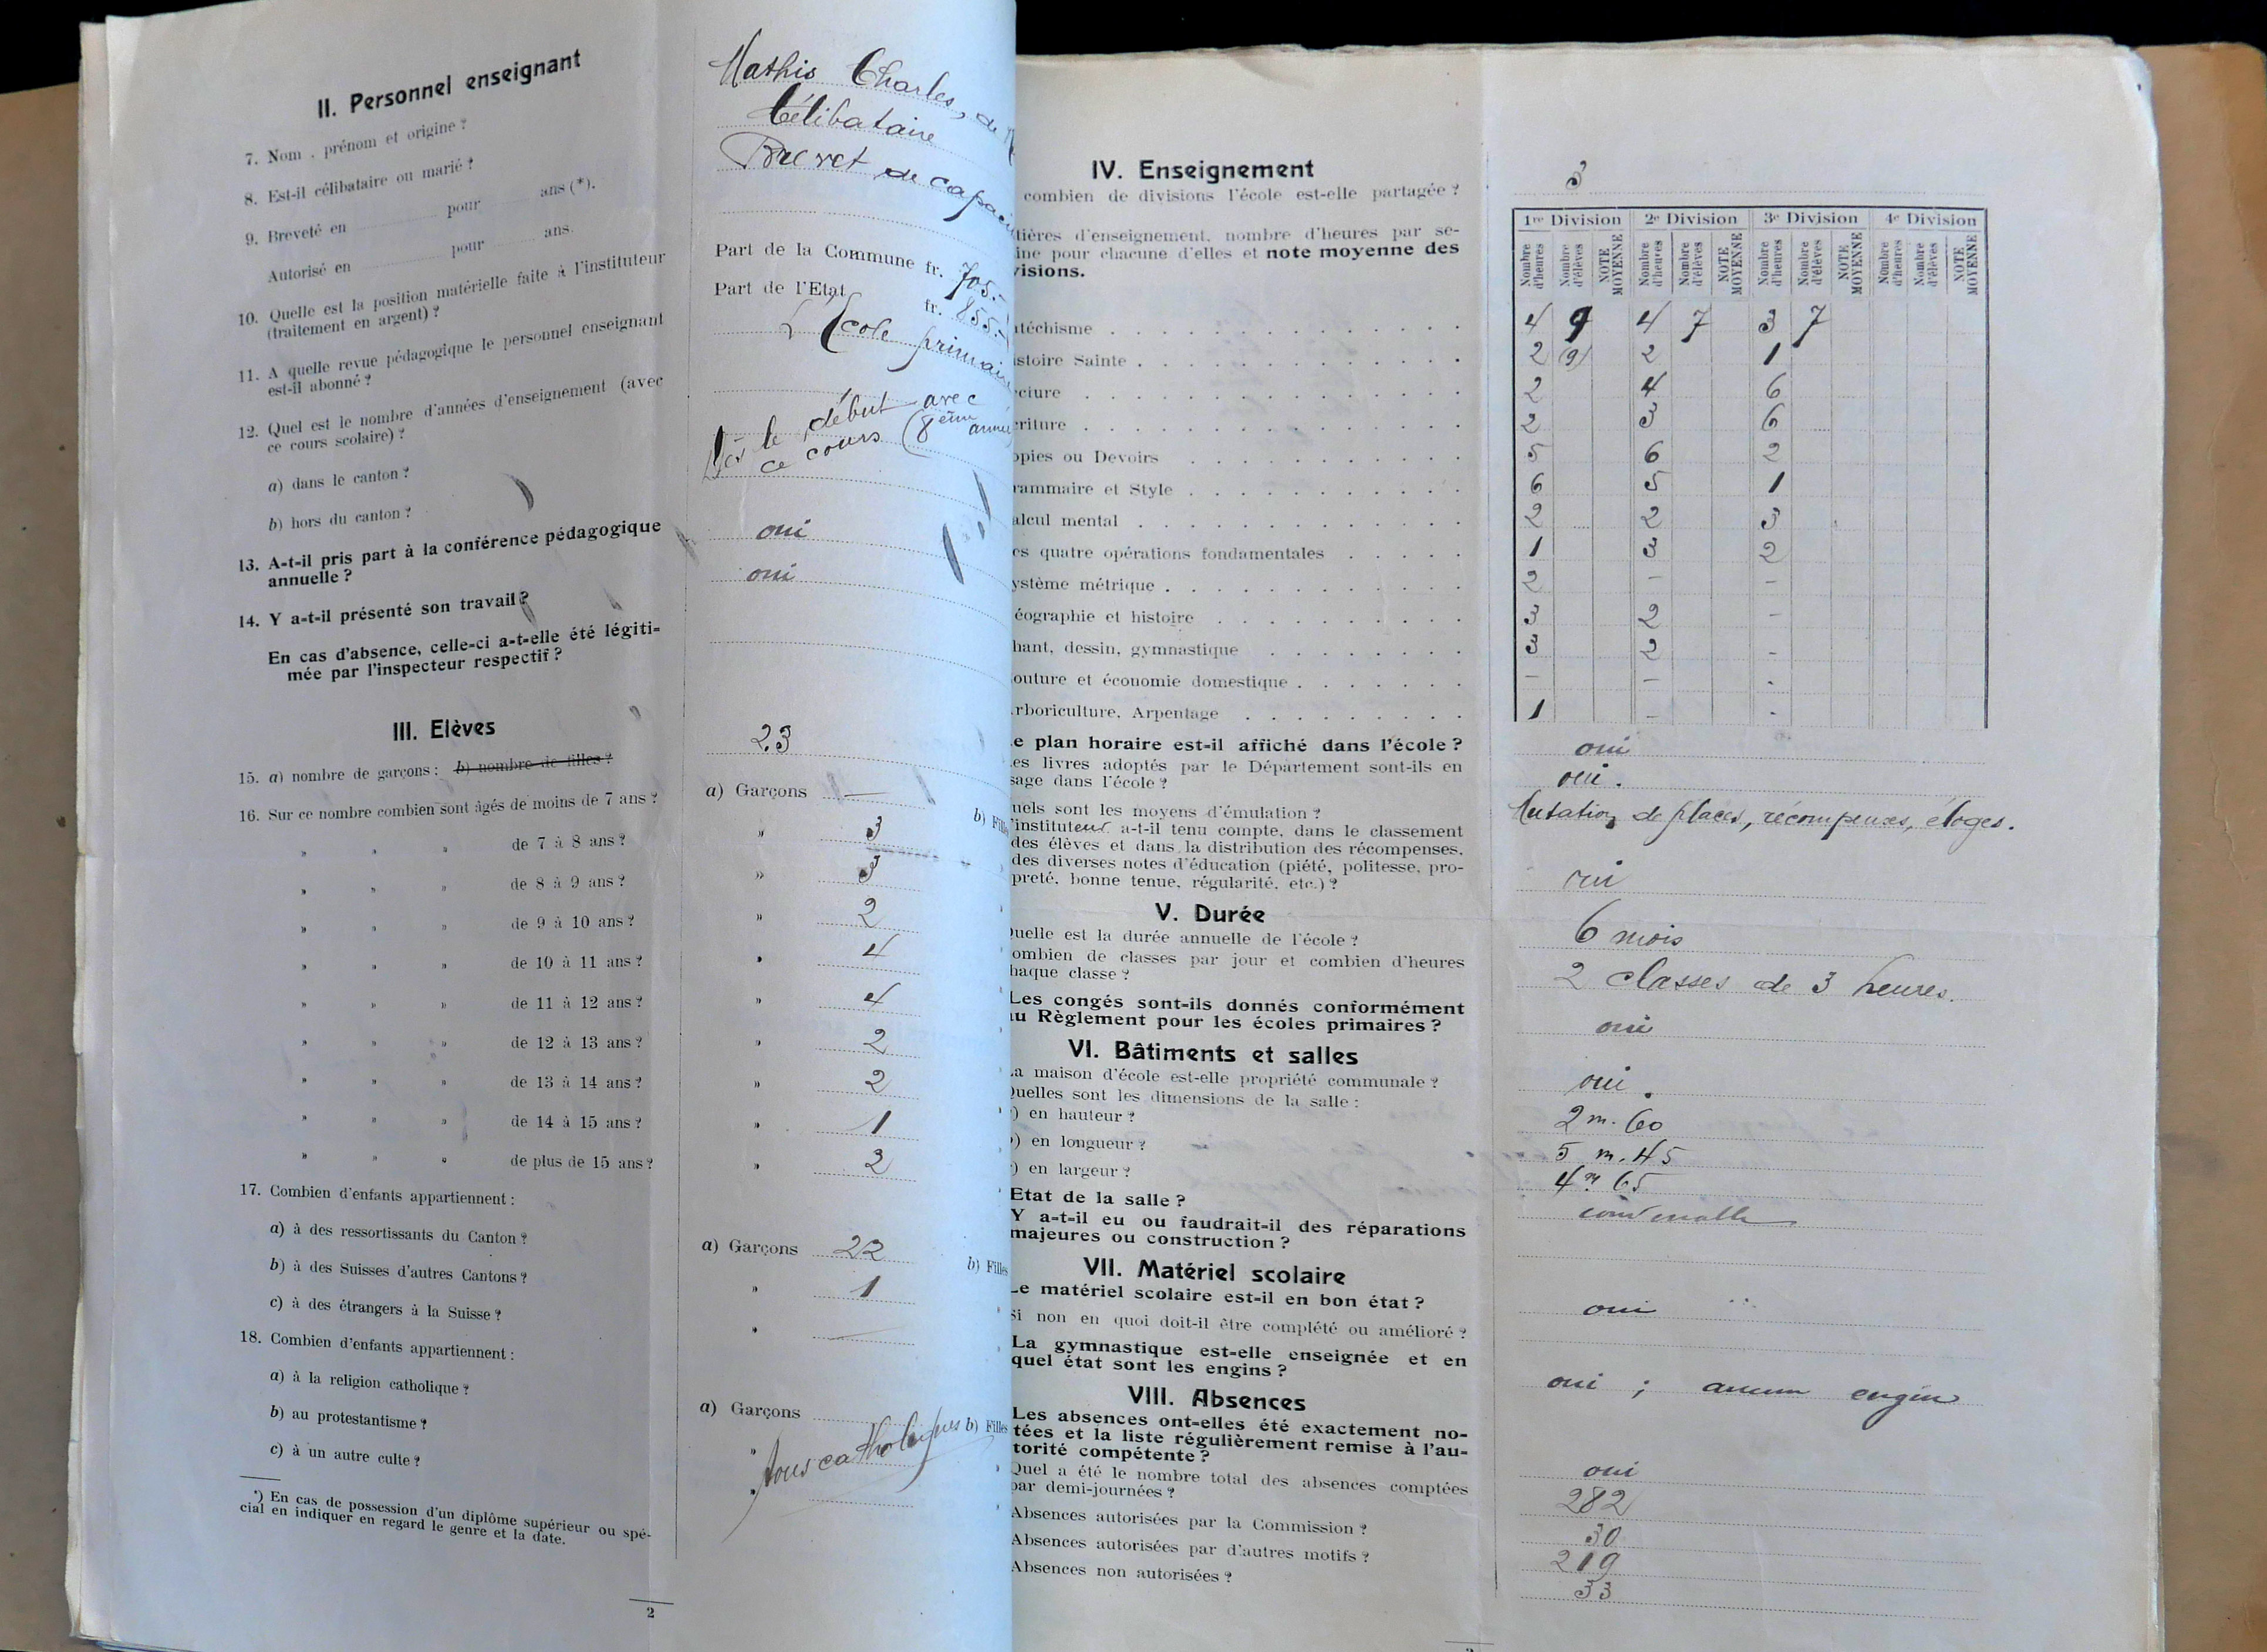 II. Personnel enseignant
7. Nom, prénom et origine ?
Mathis Charles, de
8. Est-il célibataire ou marié ?
Célibataire
9. Breveté en pour ans (*).
Brevet de capaci
Autorisé en pour ans.
10. Quelle est la position matérielle faite à l'instituteur
(traitement en argent) ?
Part de la Commune fr. 705.-
Part de l'Etat fr. 855.-
11. A quelle revue pédagogique le personnel enseignant
est-il abonné ?
L'Ecole primaire
12. Quel est le nombre d'années d'enseignement (avec
ce cours scolaire) ?
Dès le début avec
ce cours (8ème année
a) dans le canton ?
b) hors du canton ?
13. A-t-il pris part à la conférence pédagogique
annuelle ?
oui
14. Y a-t-il présenté son travail ?
oui
En cas d'absence, celle-ci a-t-elle été légiti-
mée par l'inspecteur respectif ?
III. Elèves
15. a) nombre de garçons : b) nombre de filles ?
23
16. Sur ce nombre combien sont âgés de moins de 7 ans ? a) Garçons — b) Filles
» » » de 7 à 8 ans ? » 3
» » » de 8 à 9 ans ? » 3
» » » de 9 à 10 ans ? » 2
» » » de 10 à 11 ans ? » 4
» » » de 11 à 12 ans ? » 4
» » » de 12 à 13 ans ? » 2
» » » de 13 à 14 ans ? » 2
» » » de 14 à 15 ans ? » 1
» » » de plus de 15 ans ? » 2
17. Combien d'enfants appartiennent :
a) à des ressortissants du Canton ? a) Garçons 22 b) Filles
b) à des Suisses d'autres Cantons ? » 1
c) à des étrangers à la Suisse ? » —
18. Combien d'enfants appartiennent :
a) à la religion catholique ? a) Garçons b) Filles
b) au protestantisme ? »
tous catholiques
c) à un autre culte ? »
*) En cas de possession d'un diplôme supérieur ou spé-
cial en indiquer en regard le genre et la date.
2
IV. Enseignement
combien de divisions l'école est-elle partagée ?
3
tières d'enseignement, nombre d'heures par se-
ine pour chacune d'elles et note moyenne des
visions.
1re Division 2e Division 3e Division 4e Division
Nombre d'heures Nombre d'élèves NOTE MOYENNE Nombre d'heures Nombre d'élèves NOTE MOYENNE Nombre d'heures Nombre d'élèves NOTE MOYENNE Nombre d'heures Nombre d'élèves NOTE MOYENNE
atéchisme 4 9 4 7 3 7
istoire Sainte 2 (9) 2 1
cture 2 4 6
criture 2 3 6
opies ou Devoirs 5 6 2
rammaire et Style 6 5 1
alcul mental 2 2 3
es quatre opérations fondamentales 1 3 2
ystème métrique 2 - -
éographie et histoire 3 2 -
hant, dessin, gymnastique 3 2 -
outure et économie domestique - - -
rboriculture, Arpentage 1 - -
e plan horaire est-il affiché dans l'école ?
oui
es livres adoptés par le Département sont-ils en
sage dans l'école ?
oui.
uels sont les moyens d'émulation ?
Mutation de places, récompenses, éloges.
'instituteur a-t-il tenu compte, dans le classement
des élèves et dans la distribution des récompenses,
des diverses notes d'éducation (piété, politesse, pro-
preté, bonne tenue, régularité, etc.) ?
oui
V. Durée
Quelle est la durée annuelle de l'école ?
6 mois
ombien de classes par jour et combien d'heures
haque classe ?
2 classes de 3 heures.
Les congés sont-ils donnés conformément
au Règlement pour les écoles primaires ?
oui
VI. Bâtiments et salles
La maison d'école est-elle propriété communale ?
oui.
Quelles sont les dimensions de la salle :
) en hauteur ?
2 m. 60
) en longueur ?
5 m. 45
) en largeur ?
4 m 65
Etat de la salle ?
convenable
Y a-t-il eu ou faudrait-il des réparations
majeures ou construction ?
VII. Matériel scolaire
Le matériel scolaire est-il en bon état ?
oui
Si non en quoi doit-il être complété ou amélioré ?
La gymnastique est-elle enseignée et en
quel état sont les engins ?
oui ; aucun engin
VIII. Absences
Les absences ont-elles été exactement no-
tées et la liste régulièrement remise à l'au-
torité compétente ?
oui
Quel a été le nombre total des absences comptées
par demi-journées ?
282
Absences autorisées par la Commission ?
30
Absences autorisées par d'autres motifs ?
219
Absences non autorisées ?
33